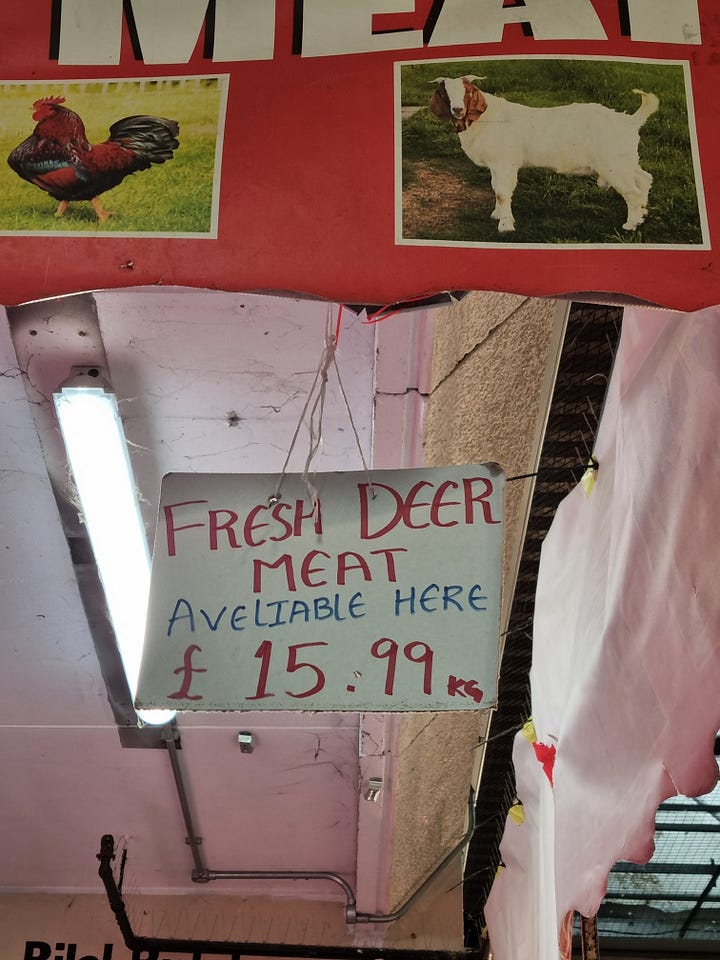 MEAT
FRESH DEER
MEAT
AVELIABLE HERE
£ 15.99 KG